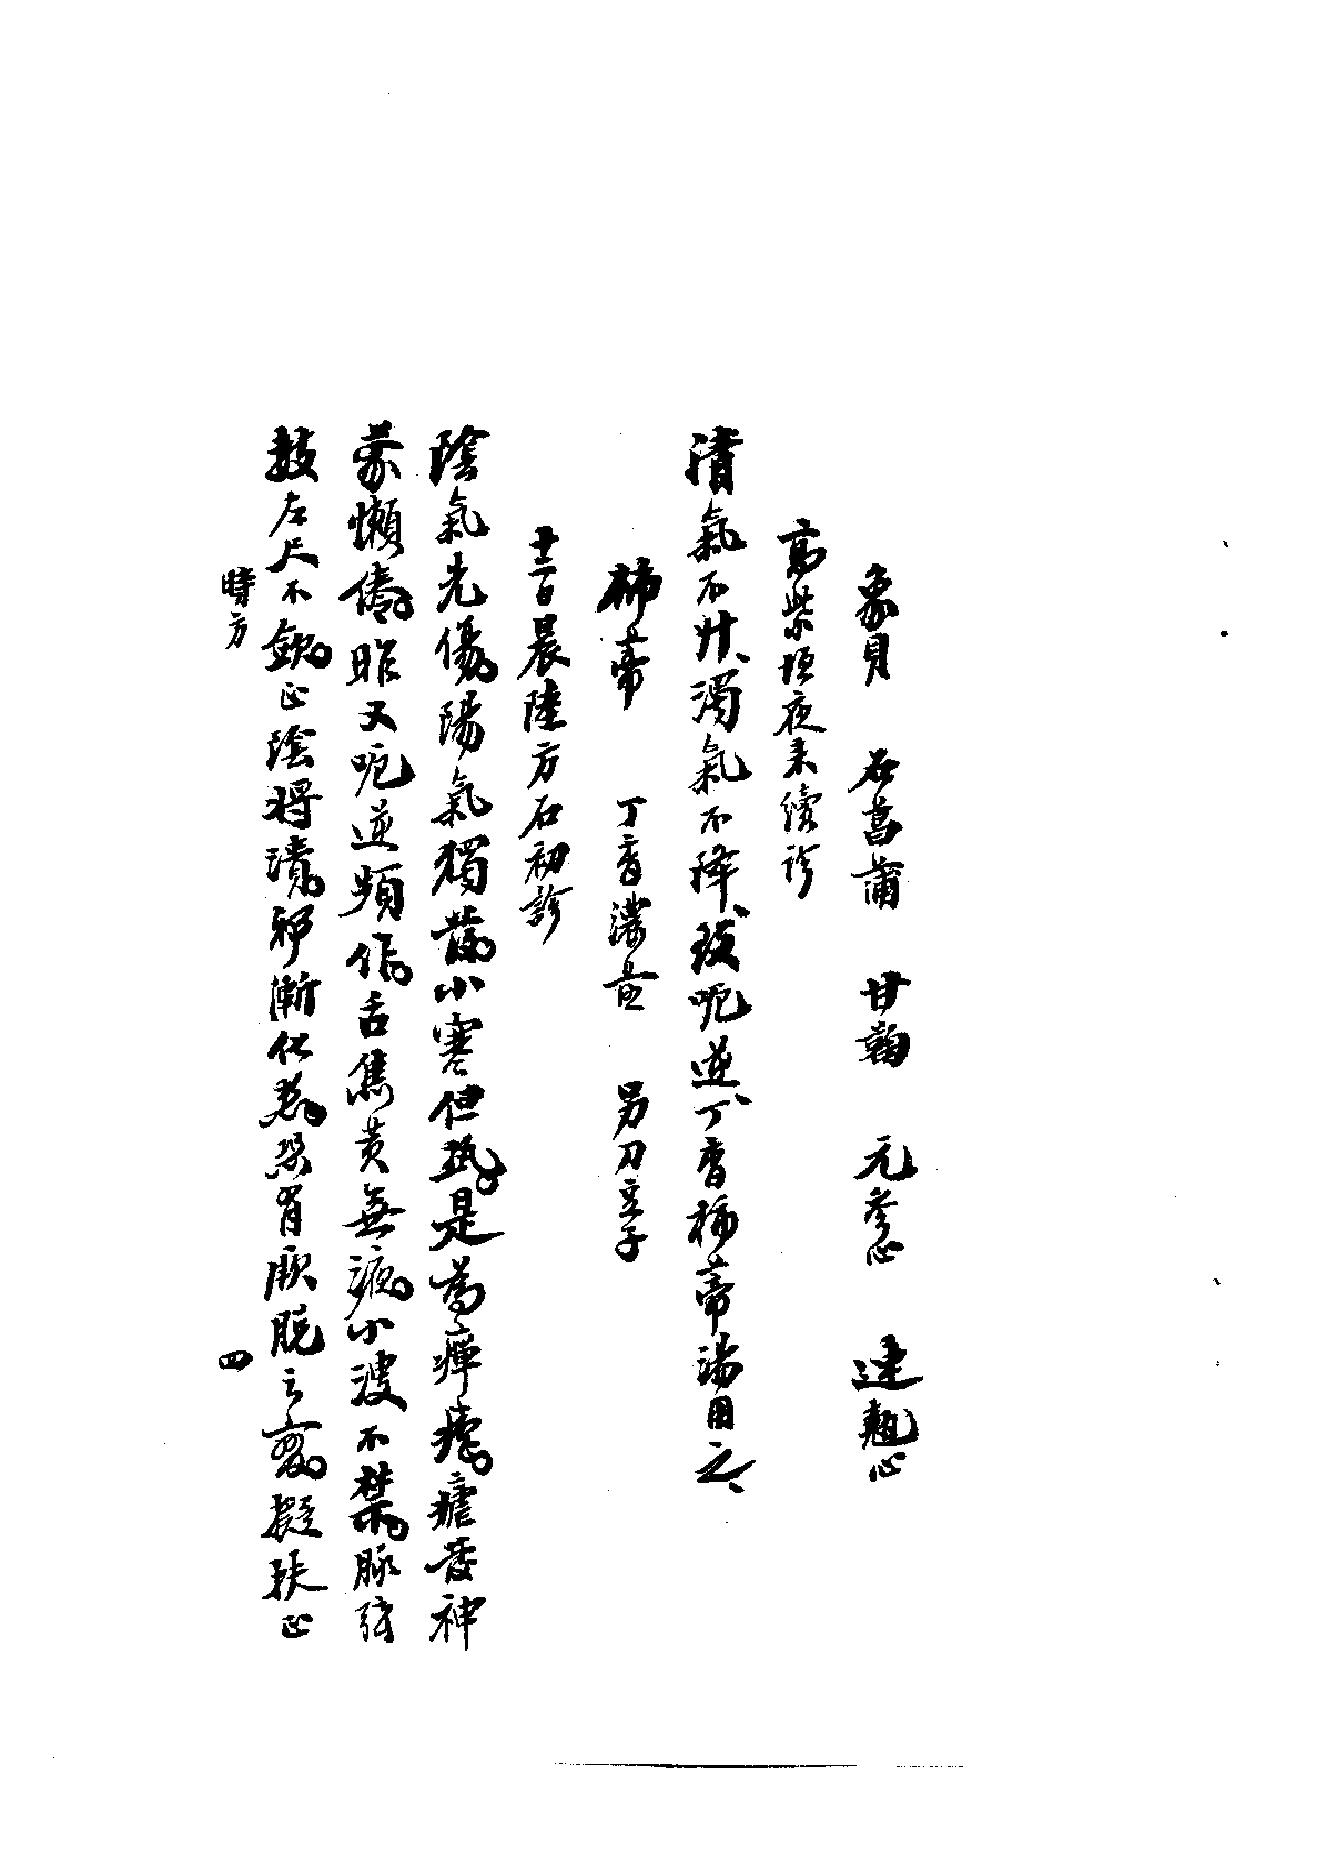 象貝 石菖蒲 甘菊 元參心 連翹心
高紫垣夜來續診
清氣不升、濁氣不降、致呃逆、丁香柿蒂湯用之、
柿蒂 丁香濃煎 另刀豆子
廿二日晨陸方石初診
陰氣先傷。陽氣獨發。小寒但熱。是為癉瘧。瘧發神
蒙懶倦。昨又呃逆頻作。舌焦黃無液。小溲不禁。脈弦
數左尺不斂。正陰將潰。邪漸化。恐有厥脫之變。擬扶正
時方 四